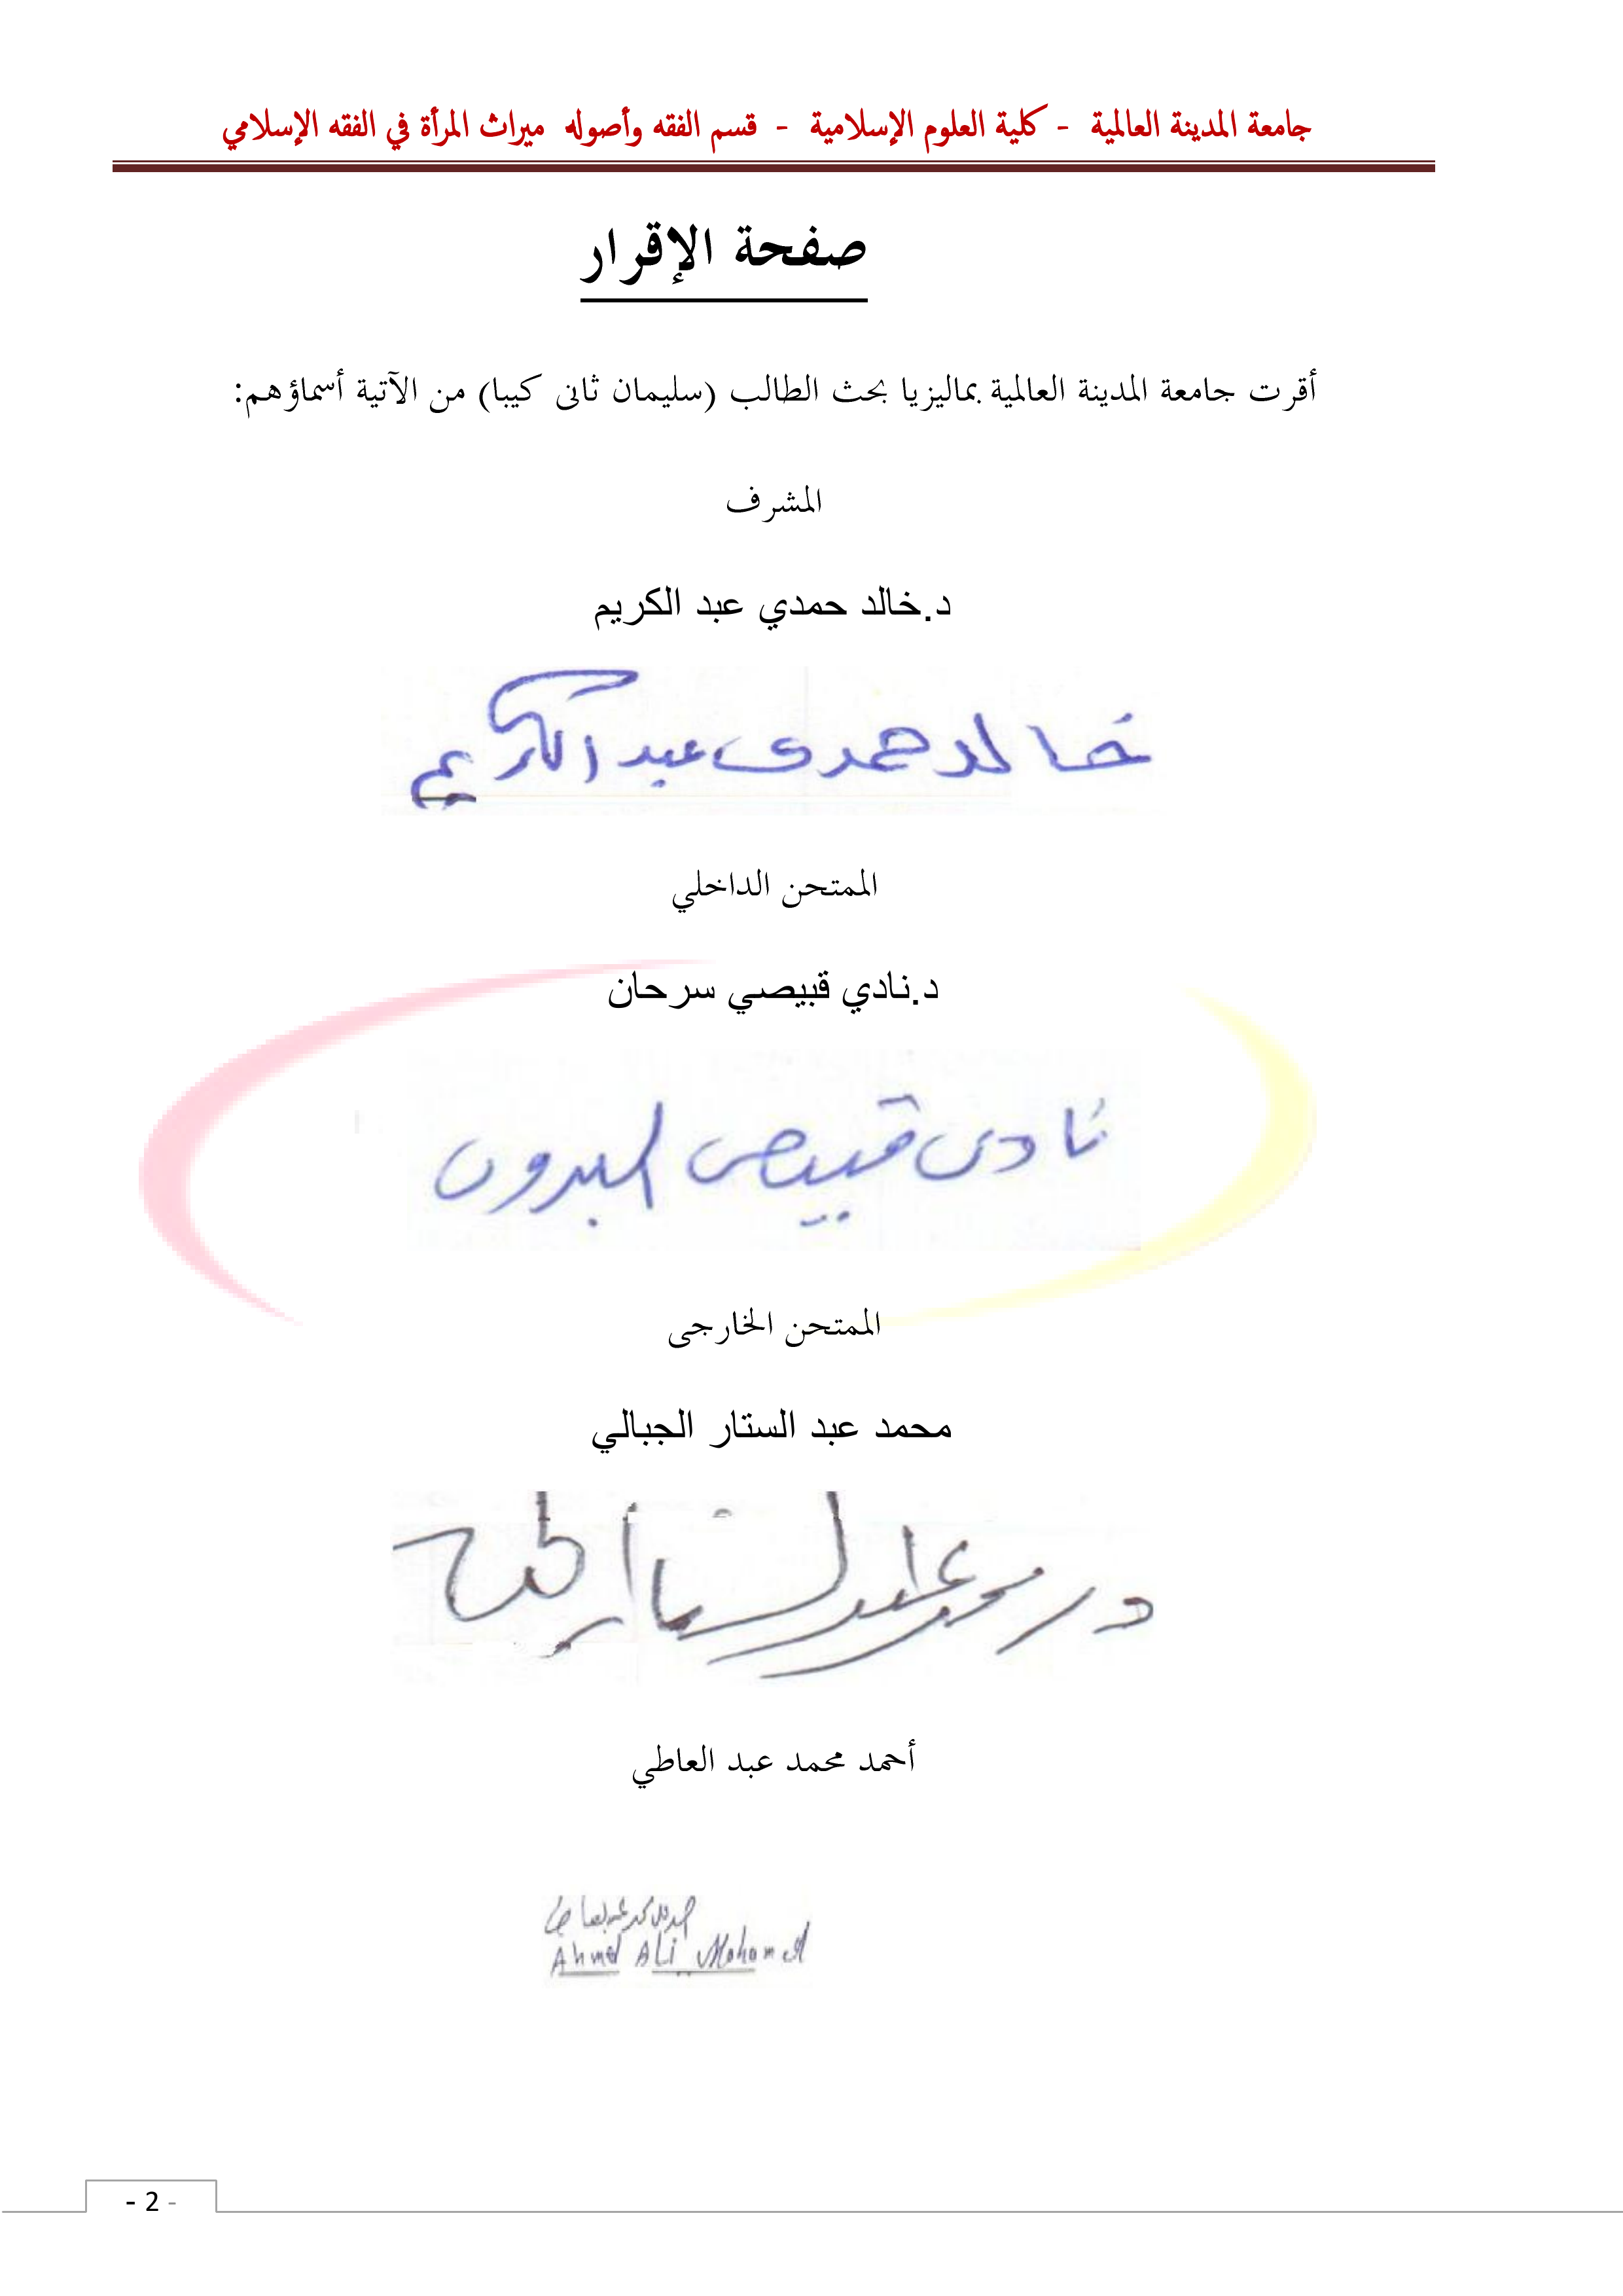 جامعة المدينة العالمية - كلية العلوم الإسلامية - قسم الفقه وأصوله ميراث المرأة في الفقه الإسلامي
صفحة الإقرار
أقرت جامعة المدينة العالمية بماليزيا بحث الطالب (سليمان ثانى كيبا) من الآتية أسماؤهم:
المشرف
د.خالد حمدي عبد الكريم
خالد حمدى عبد الكريم
الممتحن الداخلي
د.نادي قبيصي سرحان
نادى قبيصى
الممتحن الخارجى
محمد عبد الستار الجبالي
د. محمد عبد الستار
أحمد محمد عبد العاطي
Ahmed Ali Mohamed
- 2 -